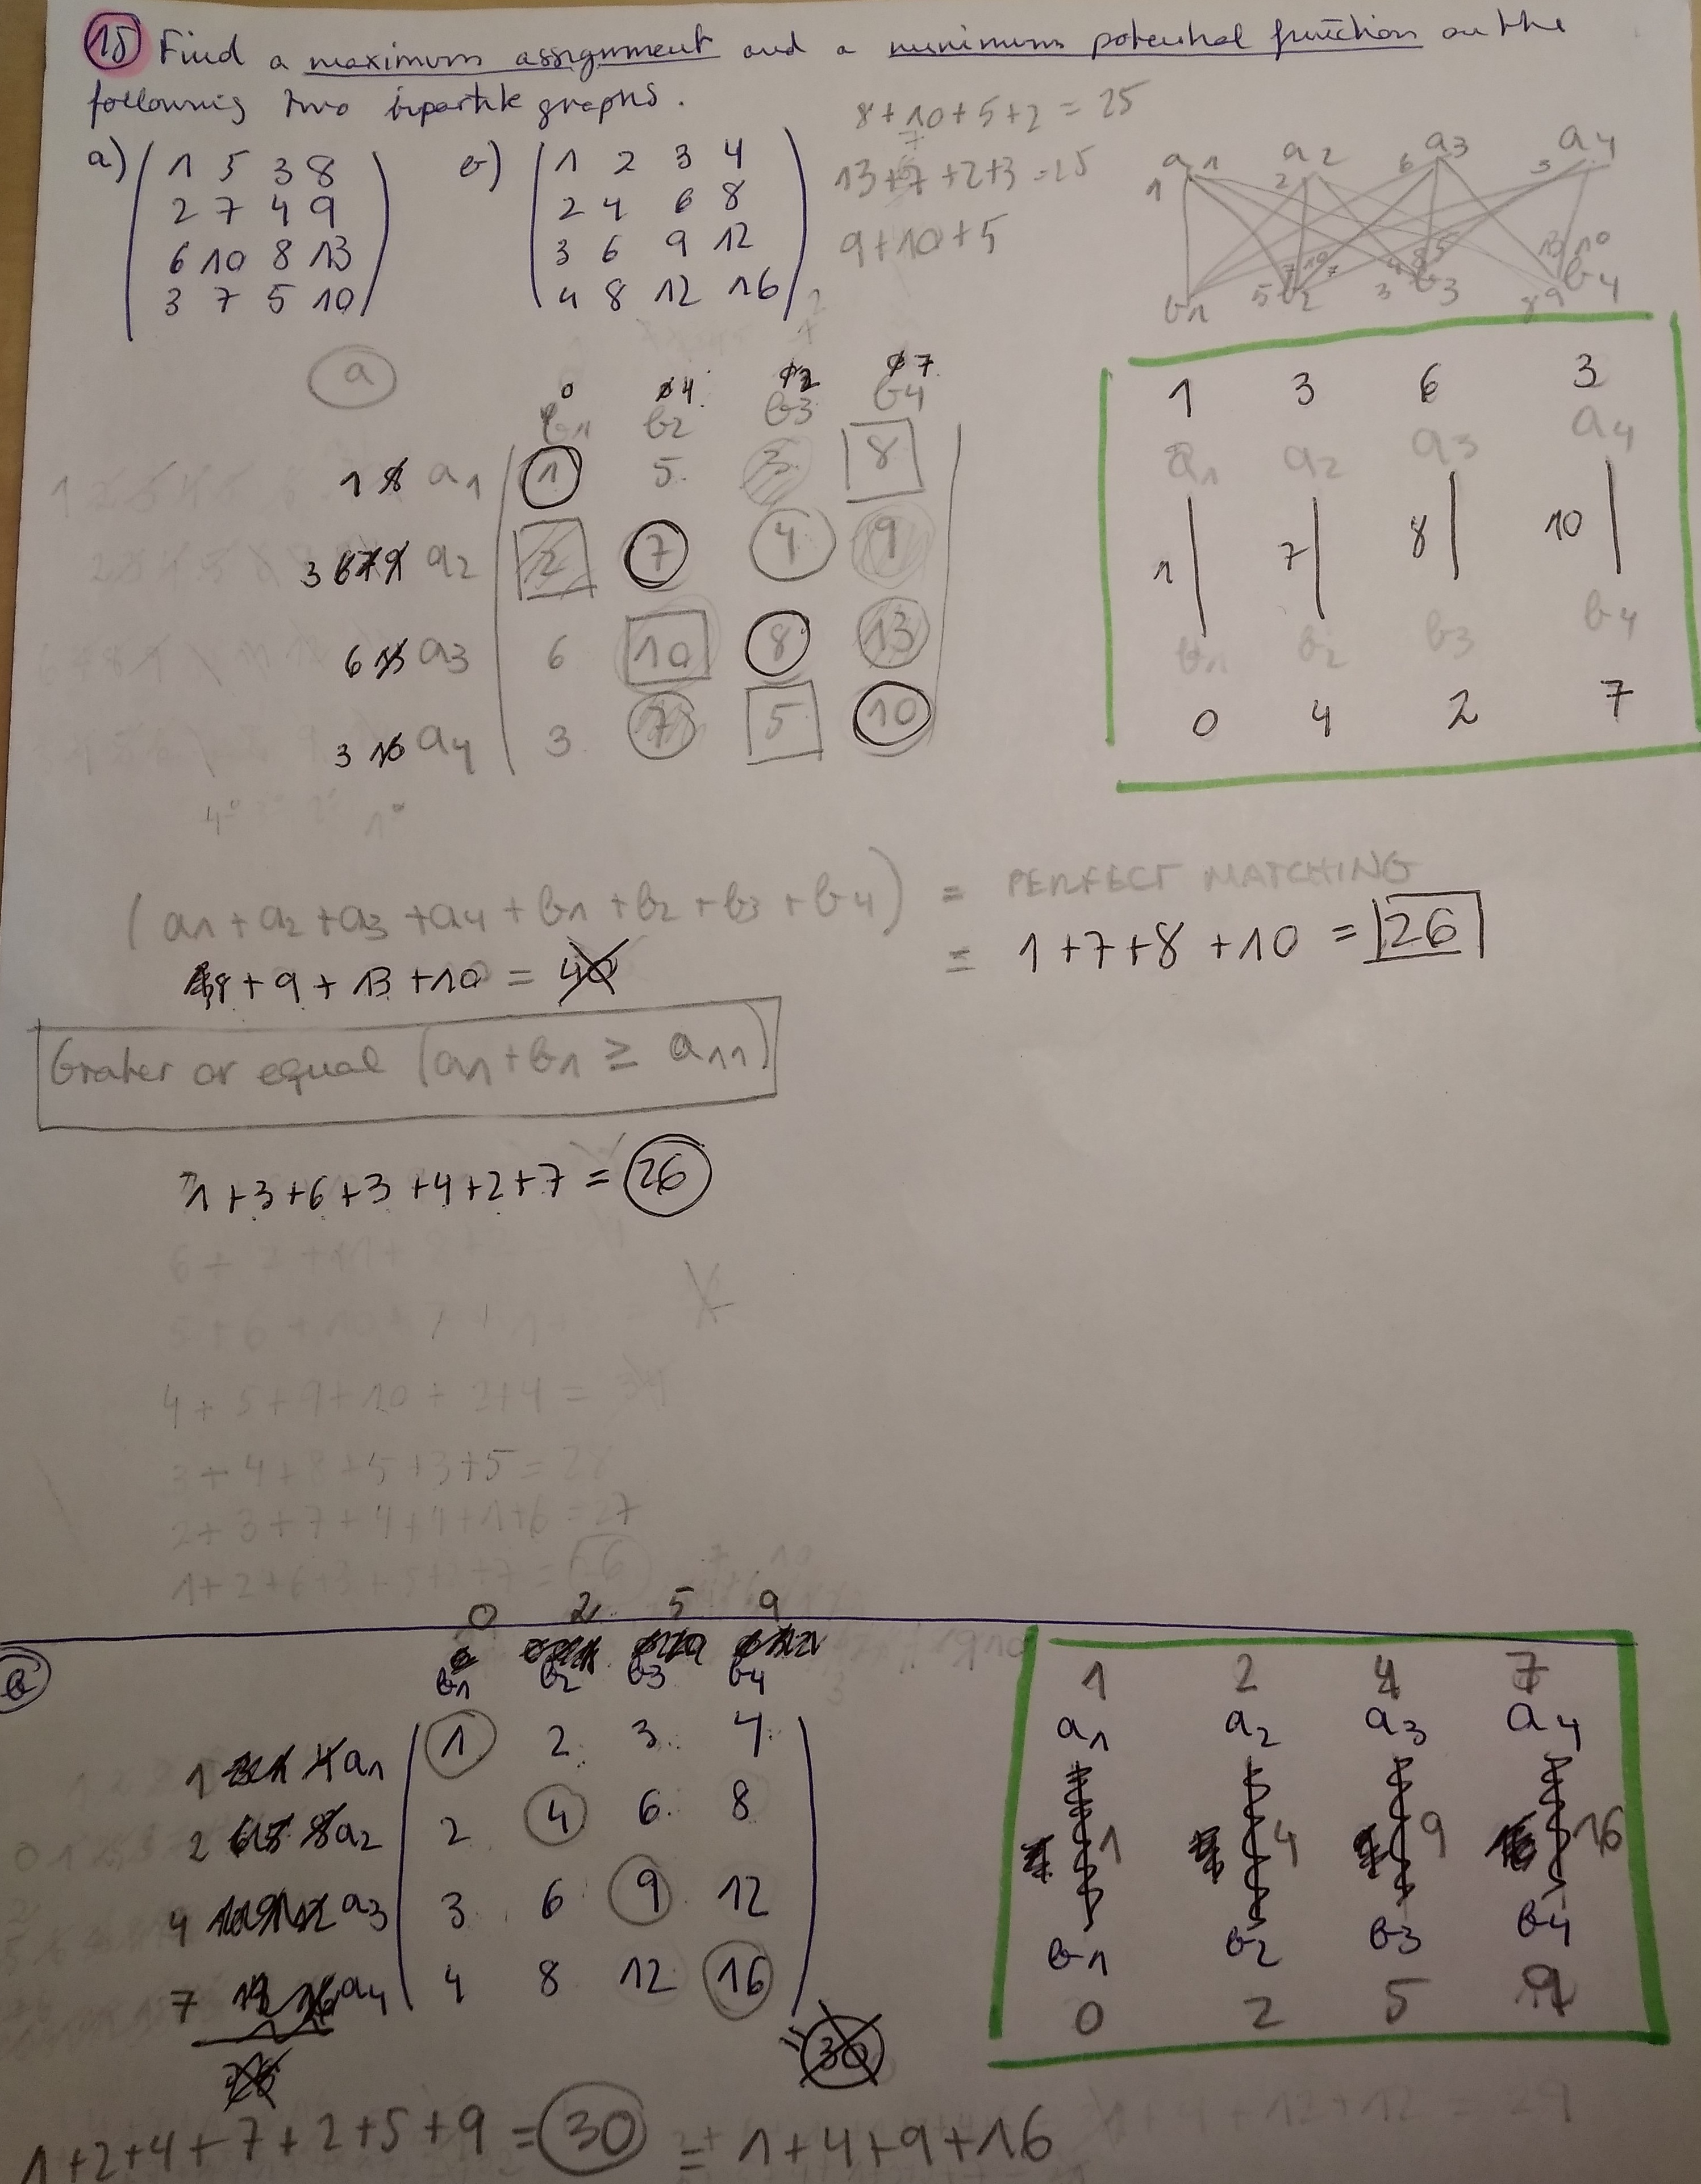 15 Find a maximum assignment and a minimum potential function on the
following two bipartite graphs.
a) 1 5 3 8
2 7 4 9
6 10 8 13
3 7 5 10
b) 1 2 3 4
2 4 6 8
3 6 9 12
4 8 12 16
8+10+5+2 = 25
13+7+2+3=25
9+10+5
a1 a2 a3 a4
b1 b2 b3 b4
a
0 4 2 7
b1 b2 b3 b4
1 a1 1 5 3 8
3 a2 2 7 4 9
6 a3 6 10 8 13
3 a4 3 7 5 10
1 3 6 3
a1 a2 a3 a4
1 7 8 10
b1 b2 b3 b4
0 4 2 7
(a1+a2+a3+a4+b1+b2+b3+b4) = PERFECT MATCHING
8+9+13+10 = 40
= 1+7+8+10 = 26
Grater or equal (a1+b1 ≥ a11)
1+3+6+3+4+2+7 = 26
4+5+9+10+2+4 = 34
3+4+8+5+3+5=28
2+3+7+4+4+1+6=27
1+2+6+3+5+2+7=26
b
0 2 5 9
b1 b2 b3 b4
1 a1 1 2 3 4
2 a2 2 4 6 8
4 a3 3 6 9 12
7 a4 4 8 12 16
30
1 2 4 7
a1 a2 a3 a4
1 4 9 16
b1 b2 b3 b4
0 2 5 9
1+2+4+7+2+5+9 = 30 = 1+4+9+16